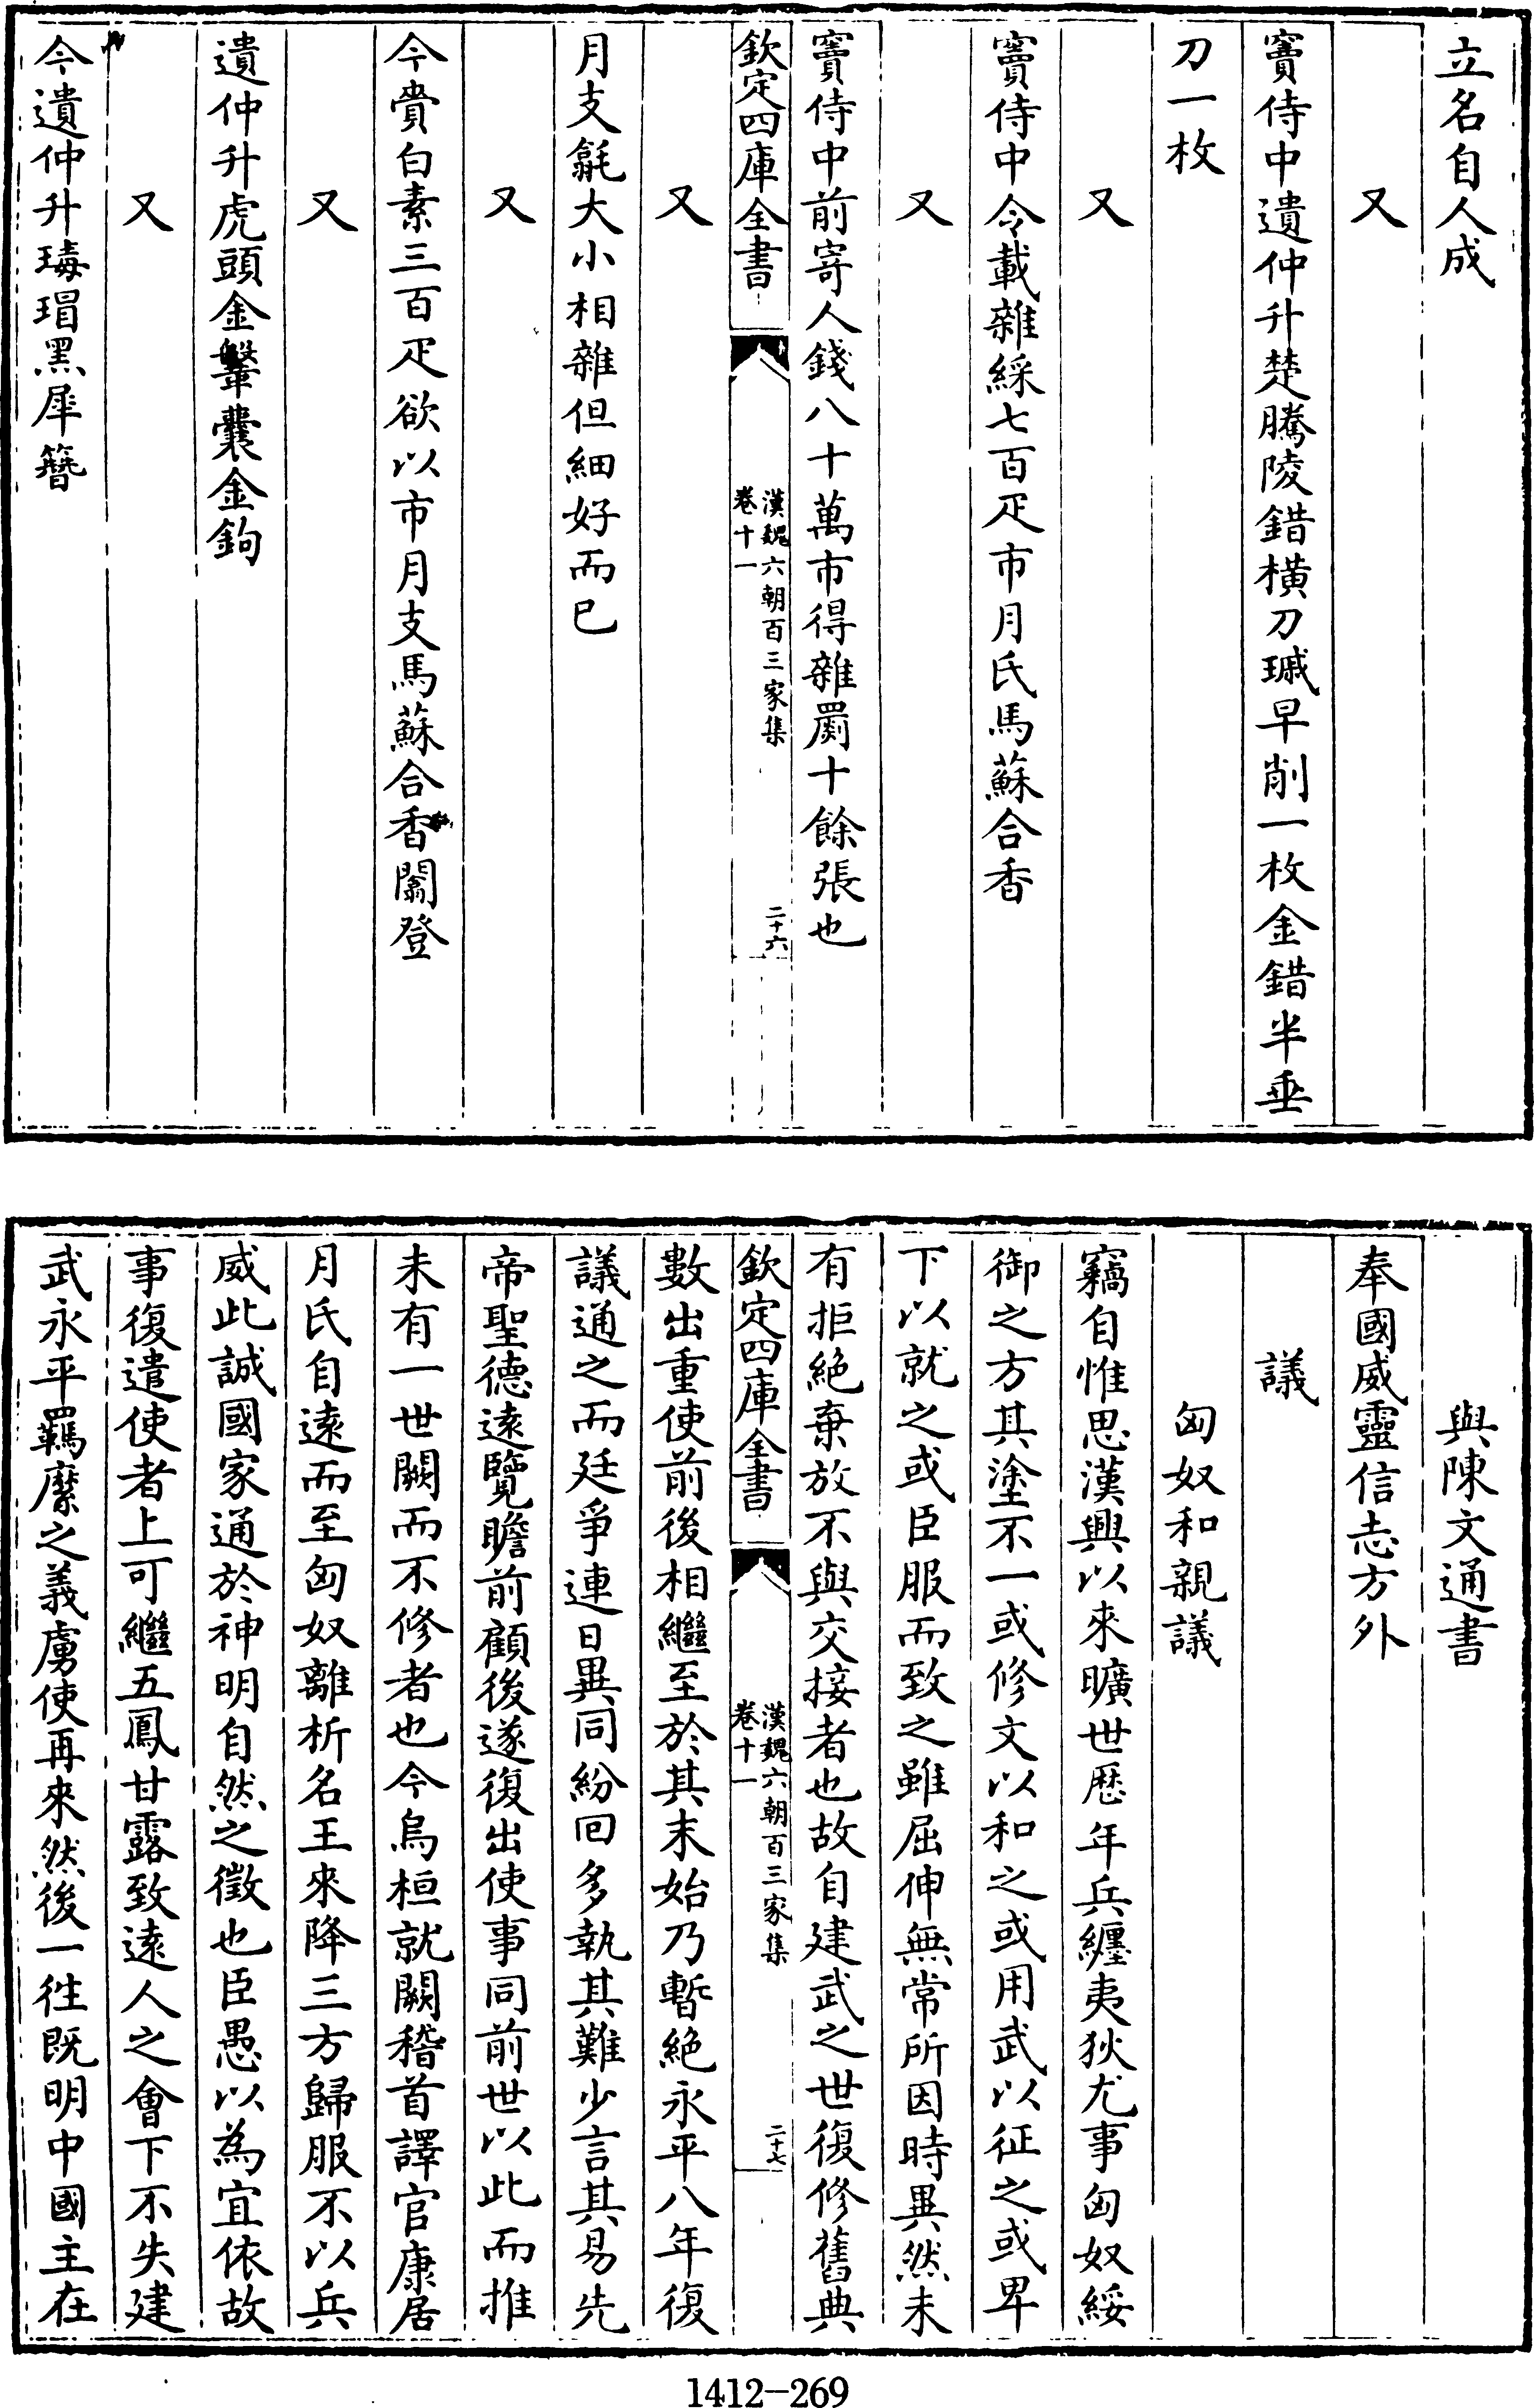 立名自人成
又
竇侍中遺仲升楚騰陵錯橫刀瑊早削一枚金錯半垂
刀一枚
又
竇侍中令載雜綵七百疋市月氏馬蘇合香
又
竇侍中前寄人錢八十萬市得雜罽十餘張也
欽定四庫全書
漢魏六朝百三家集
卷十一
二十六
又
月支毹大小相雜但細好而已
又
今賫白素三百疋欲以市月支馬蘇合香闟登
又
遺仲升虎頭金鞶囊金鉤
又
今遺仲升瑇瑁黑犀簪
與陳文通書
奉國威靈信志方外
議
匈奴和親議
竊自惟思漢興以來曠世歷年兵纏夷狄尤事匈奴綏
御之方其塗不一或修文以和之或用武以征之或卑
下以就之或臣服而致之雖屈伸無常所因時異然未
有拒絶棄放不與交接者也故自建武之世復修舊典
欽定四庫全書
漢魏六朝百三家集
卷十一
二十七
數出重使前後相繼至於其末始乃暫絶永平八年復
議通之而廷爭連日異同紛回多執其難少言其易先
帝聖德遠覽瞻前顧後遂復出使事同前世以此而推
未有一世闕而不修者也今烏桓就闕稽首譯官康居
月氏自遠而至匈奴離析名王來降三方歸服不以兵
威此誠國家通於神明自然之徵也臣愚以為宜依故
事復遣使者上可繼五鳳甘露致遠人之會下不失建
武永平羈縻之義虜使再來然後一往既明中國主在
1412-269